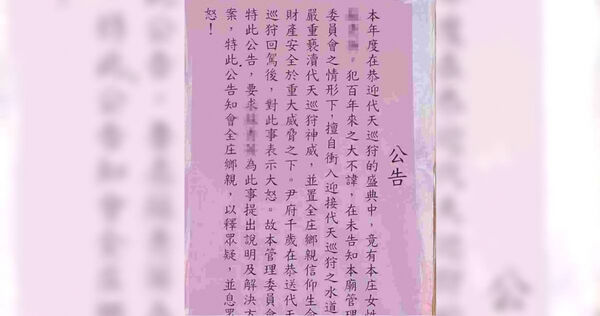 公告
本年度在恭迎代天巡狩的盛典中,竟有本庄女性
,犯百年來之大不諱,在未告知本廟管理
委員會之情形下,擅自衝入迎接代天巡狩之水道
嚴重褻瀆代天巡狩神威,並置全庄鄉親信仰生命
財產安全於重大威脅之下。尹府千歲在恭送代天
巡狩回駕後,對此事表示大怒。故本管理委員會
特此公告,要求 為此事提出說明及解決方
案,特此公告知會全庄鄉親,以釋眾疑,並息眾
怒!